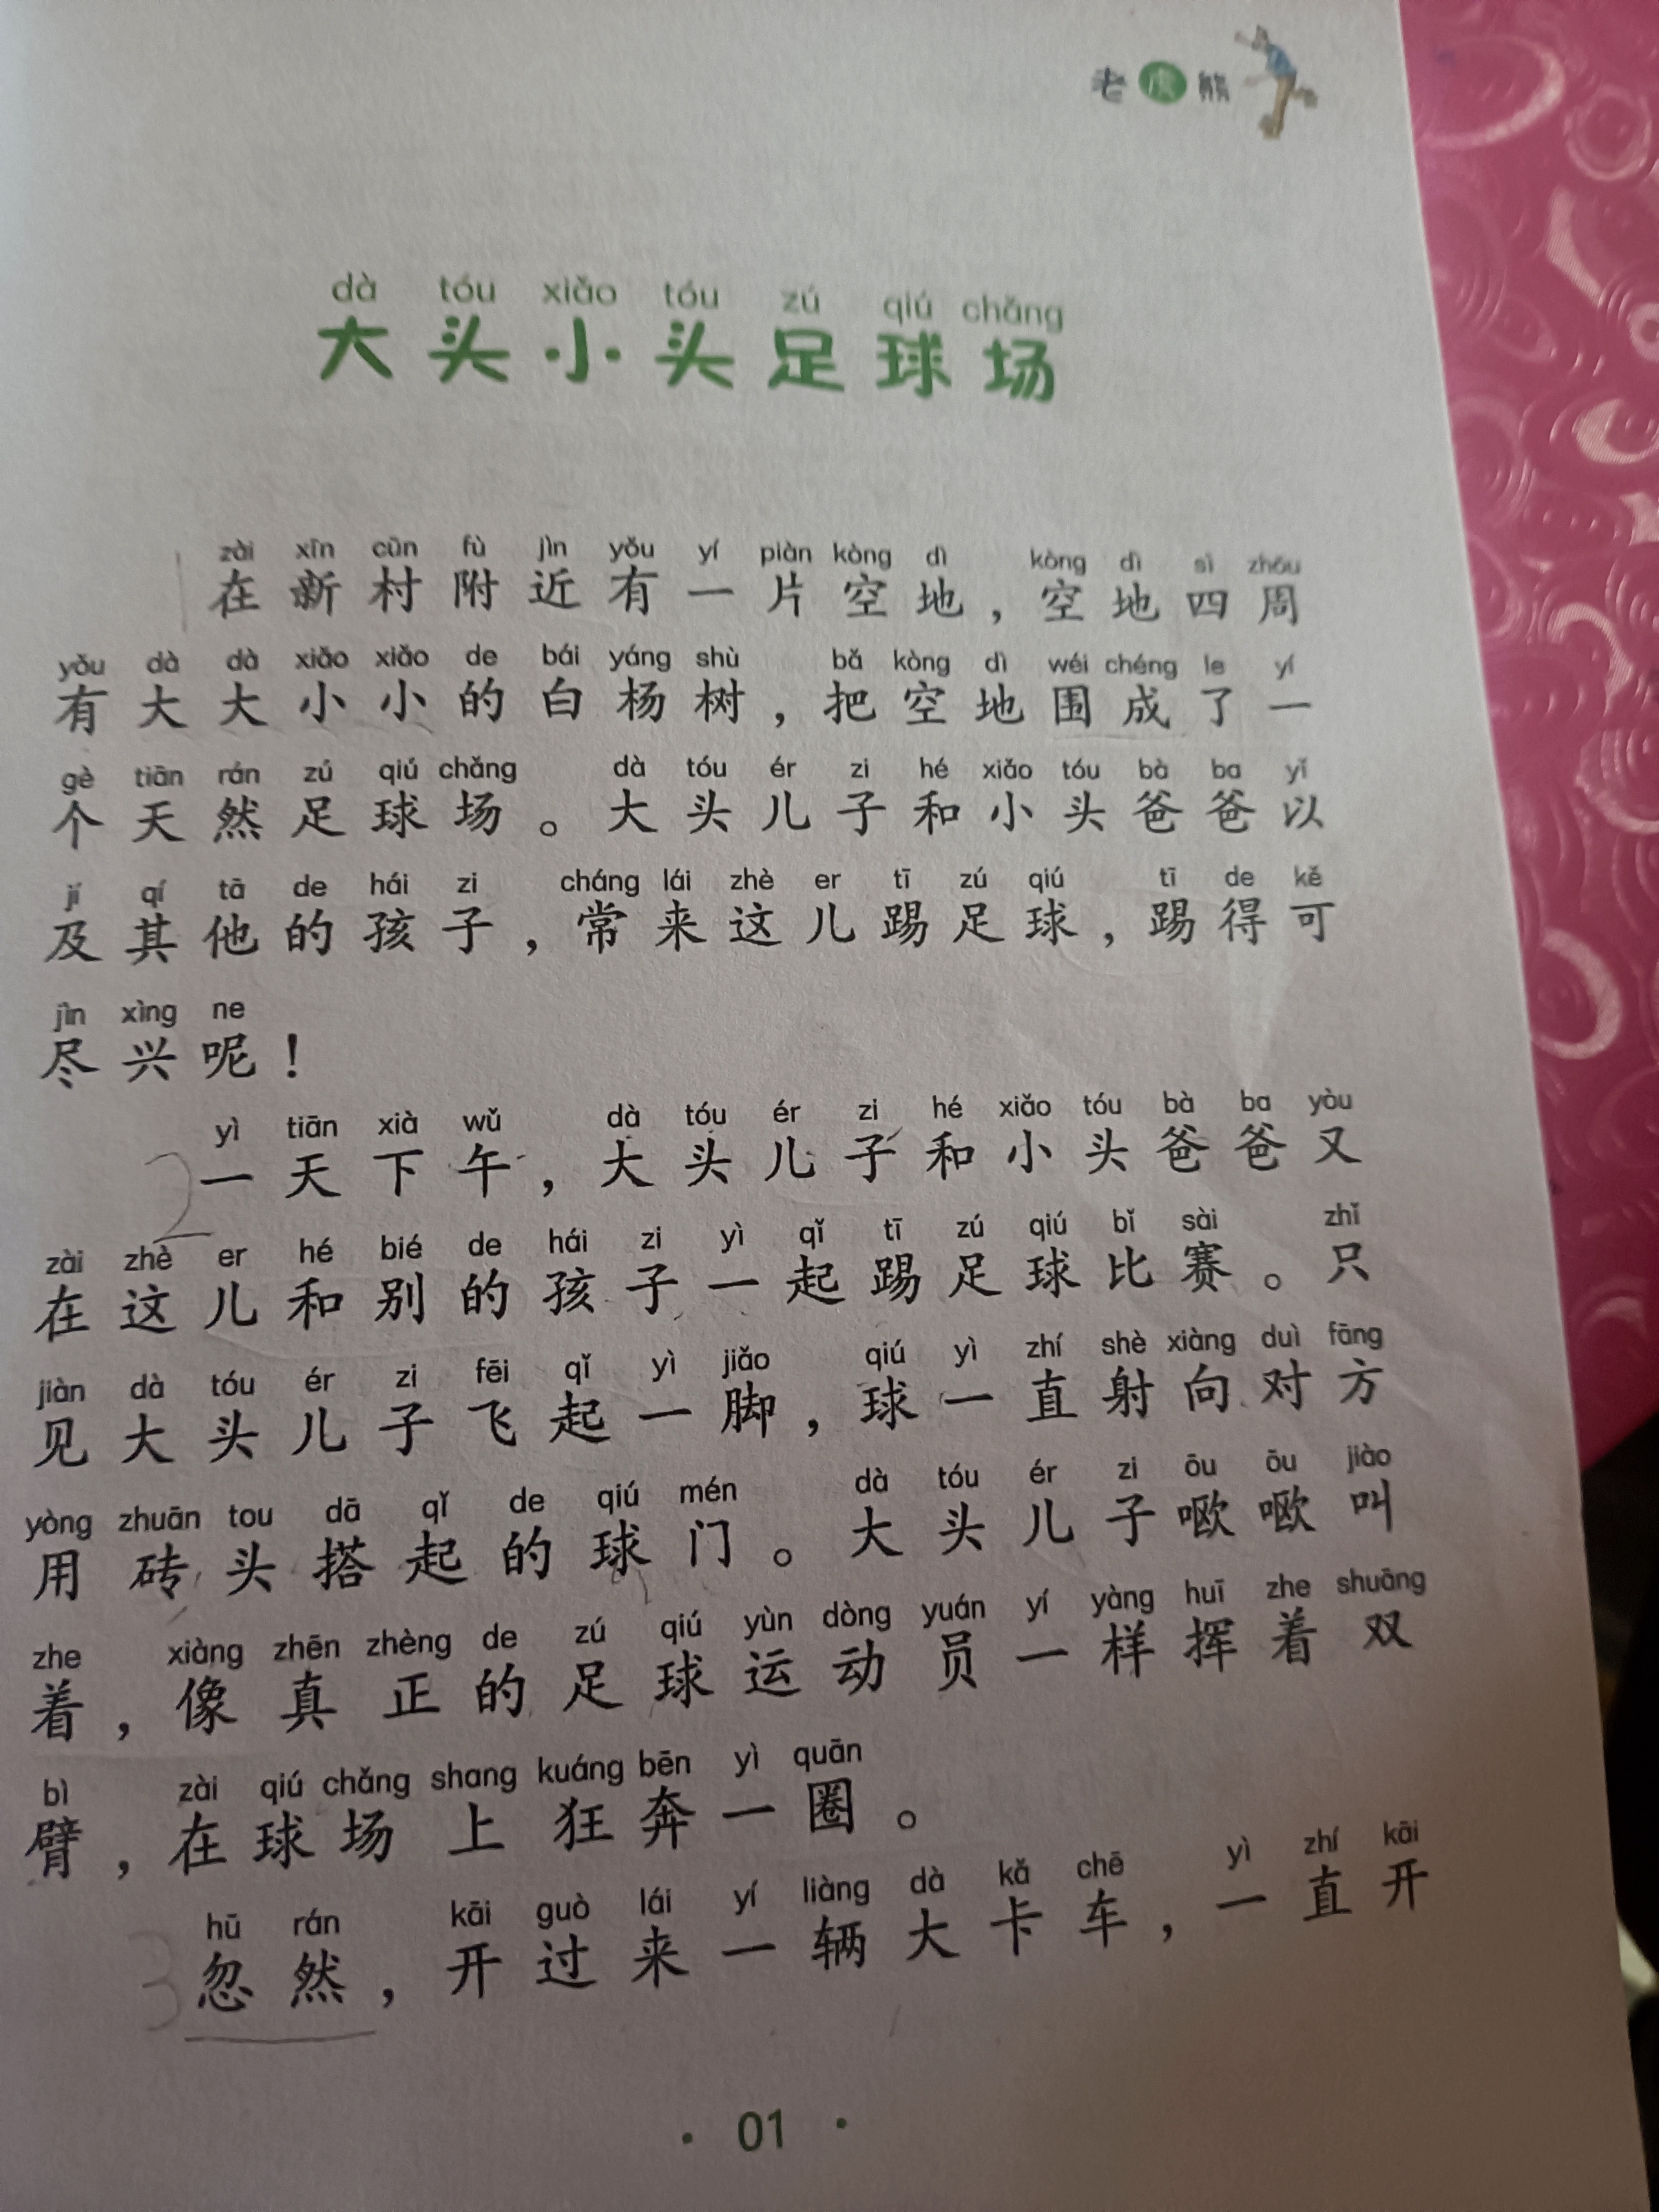 老虎熊
dà tóu xiǎo tóu zú qiú chǎng
大头小头足球场
zài xīn cūn fù jìn yǒu yí piàn kòng dì kòng dì sì zhōu
在新村附近有一片空地，空地四周
yǒu dà dà xiǎo xiǎo de bái yáng shù bǎ kòng dì wéi chéng le yí
有大大小小的白杨树，把空地围成了一
gè tiān rán zú qiú chǎng dà tóu ér zi hé xiǎo tóu bà ba yǐ
个天然足球场。大头儿子和小头爸爸以
jí qí tā de hái zi cháng lái zhè er tī zú qiú tī de kě
及其他的孩子，常来这儿踢足球，踢得可
jìn xìng ne
尽兴呢！
yì tiān xià wǔ dà tóu ér zi hé xiǎo tóu bà ba yòu
2一天下午，大头儿子和小头爸爸又
zài zhè er hé bié de hái zi yì qǐ tī zú qiú bǐ sài zhǐ
在这儿和别的孩子一起踢足球比赛。只
jiàn dà tóu ér zi fēi qǐ yì jiǎo qiú yì zhí shè xiàng duì fāng
见大头儿子飞起一脚，球一直射向对方
yòng zhuān tou dā qǐ de qiú mén dà tóu ér zi ōu ōu jiào
用砖头搭起的球门。大头儿子噢噢叫
zhe xiàng zhēn zhèng de zú qiú yùn dòng yuán yí yàng huī zhe shuāng
着，像真正的足球运动员一样挥着双
bì zài qiú chǎng shang kuáng bēn yì quān
臂，在球场上狂奔一圈。
hū rán kāi guò lái yí liàng dà kǎ chē yì zhí kāi
3忽然，开过来一辆大卡车，一直开
· 01 ·